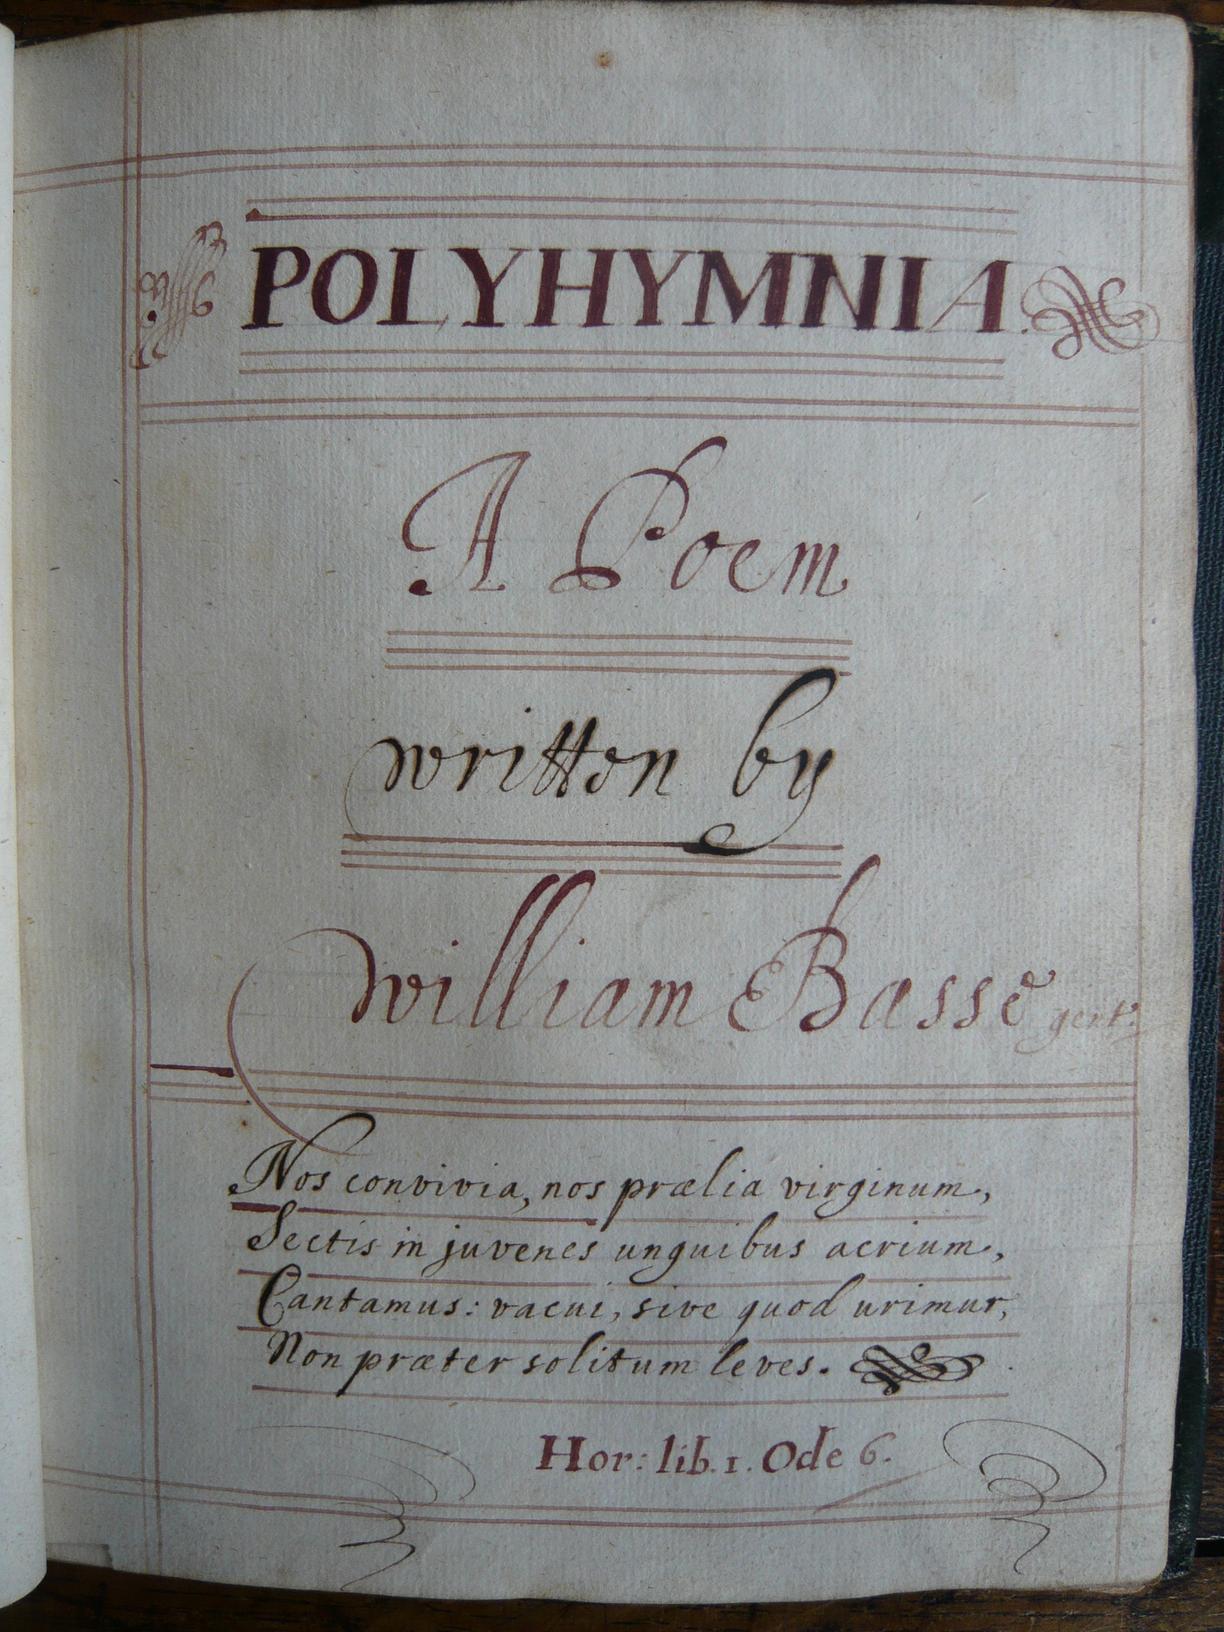 POLYHYMNIA.
A Poem
written by
William Basse gent:
Nos convivia, nos prælia virginum,
Sectis in juvenes unguibus acrium,
Cantamus: vacui, sive quod urimur,
Non præter solitum leves.
Hor: lib. 1. Ode 6.